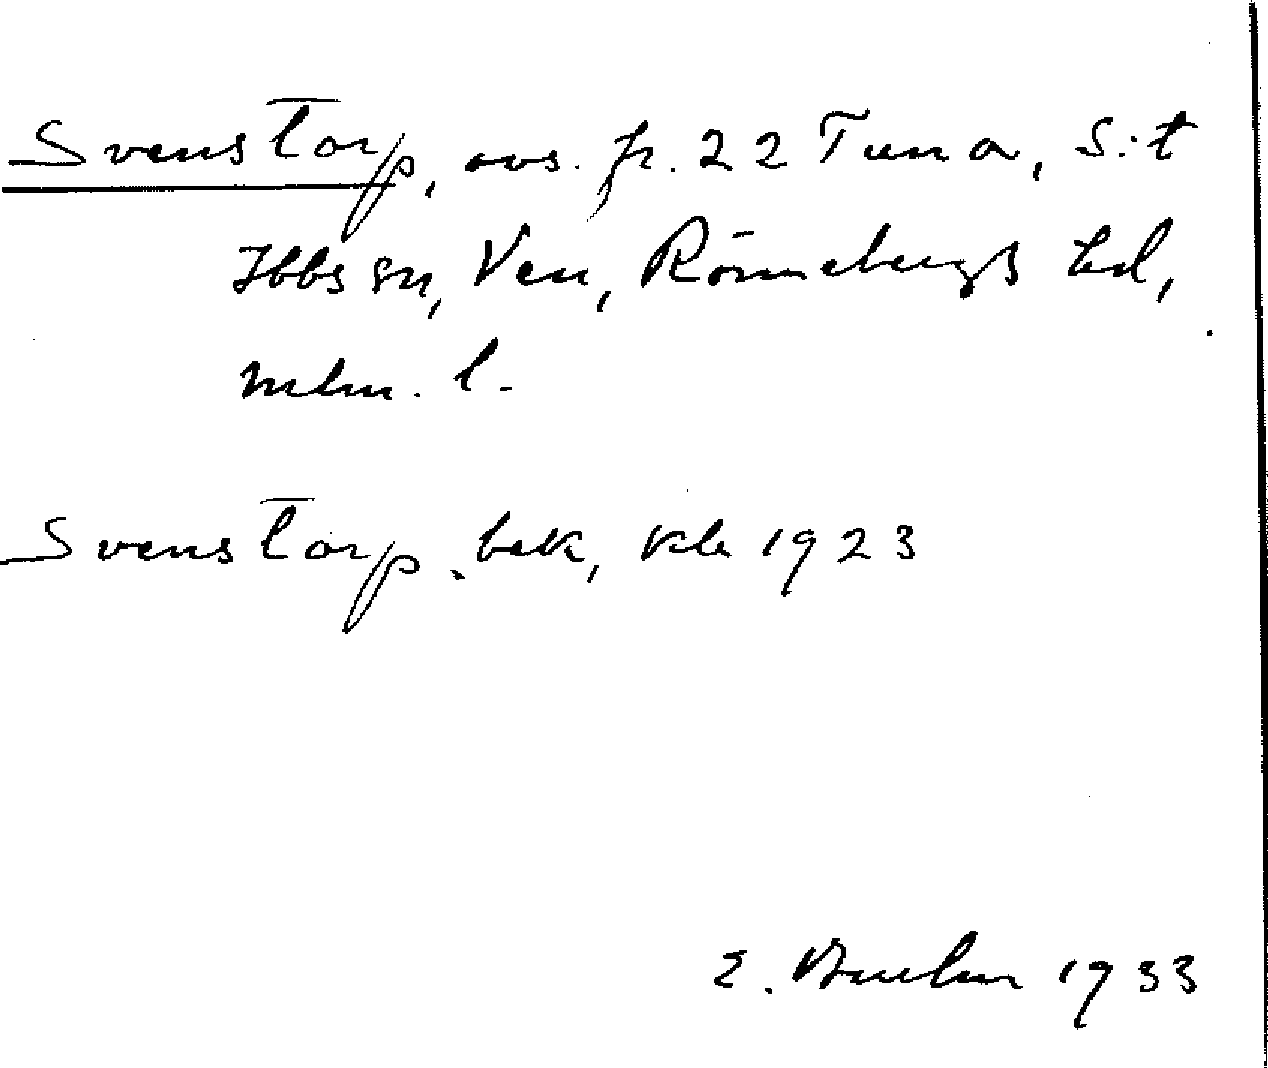 Svenstorp, avs. fr. 22 Tuna, S:t
Ibbs sn, Ven, Rönnebergs hd,
Mlm. l.
Svenstorp, bek, kb 1923
E. 1933